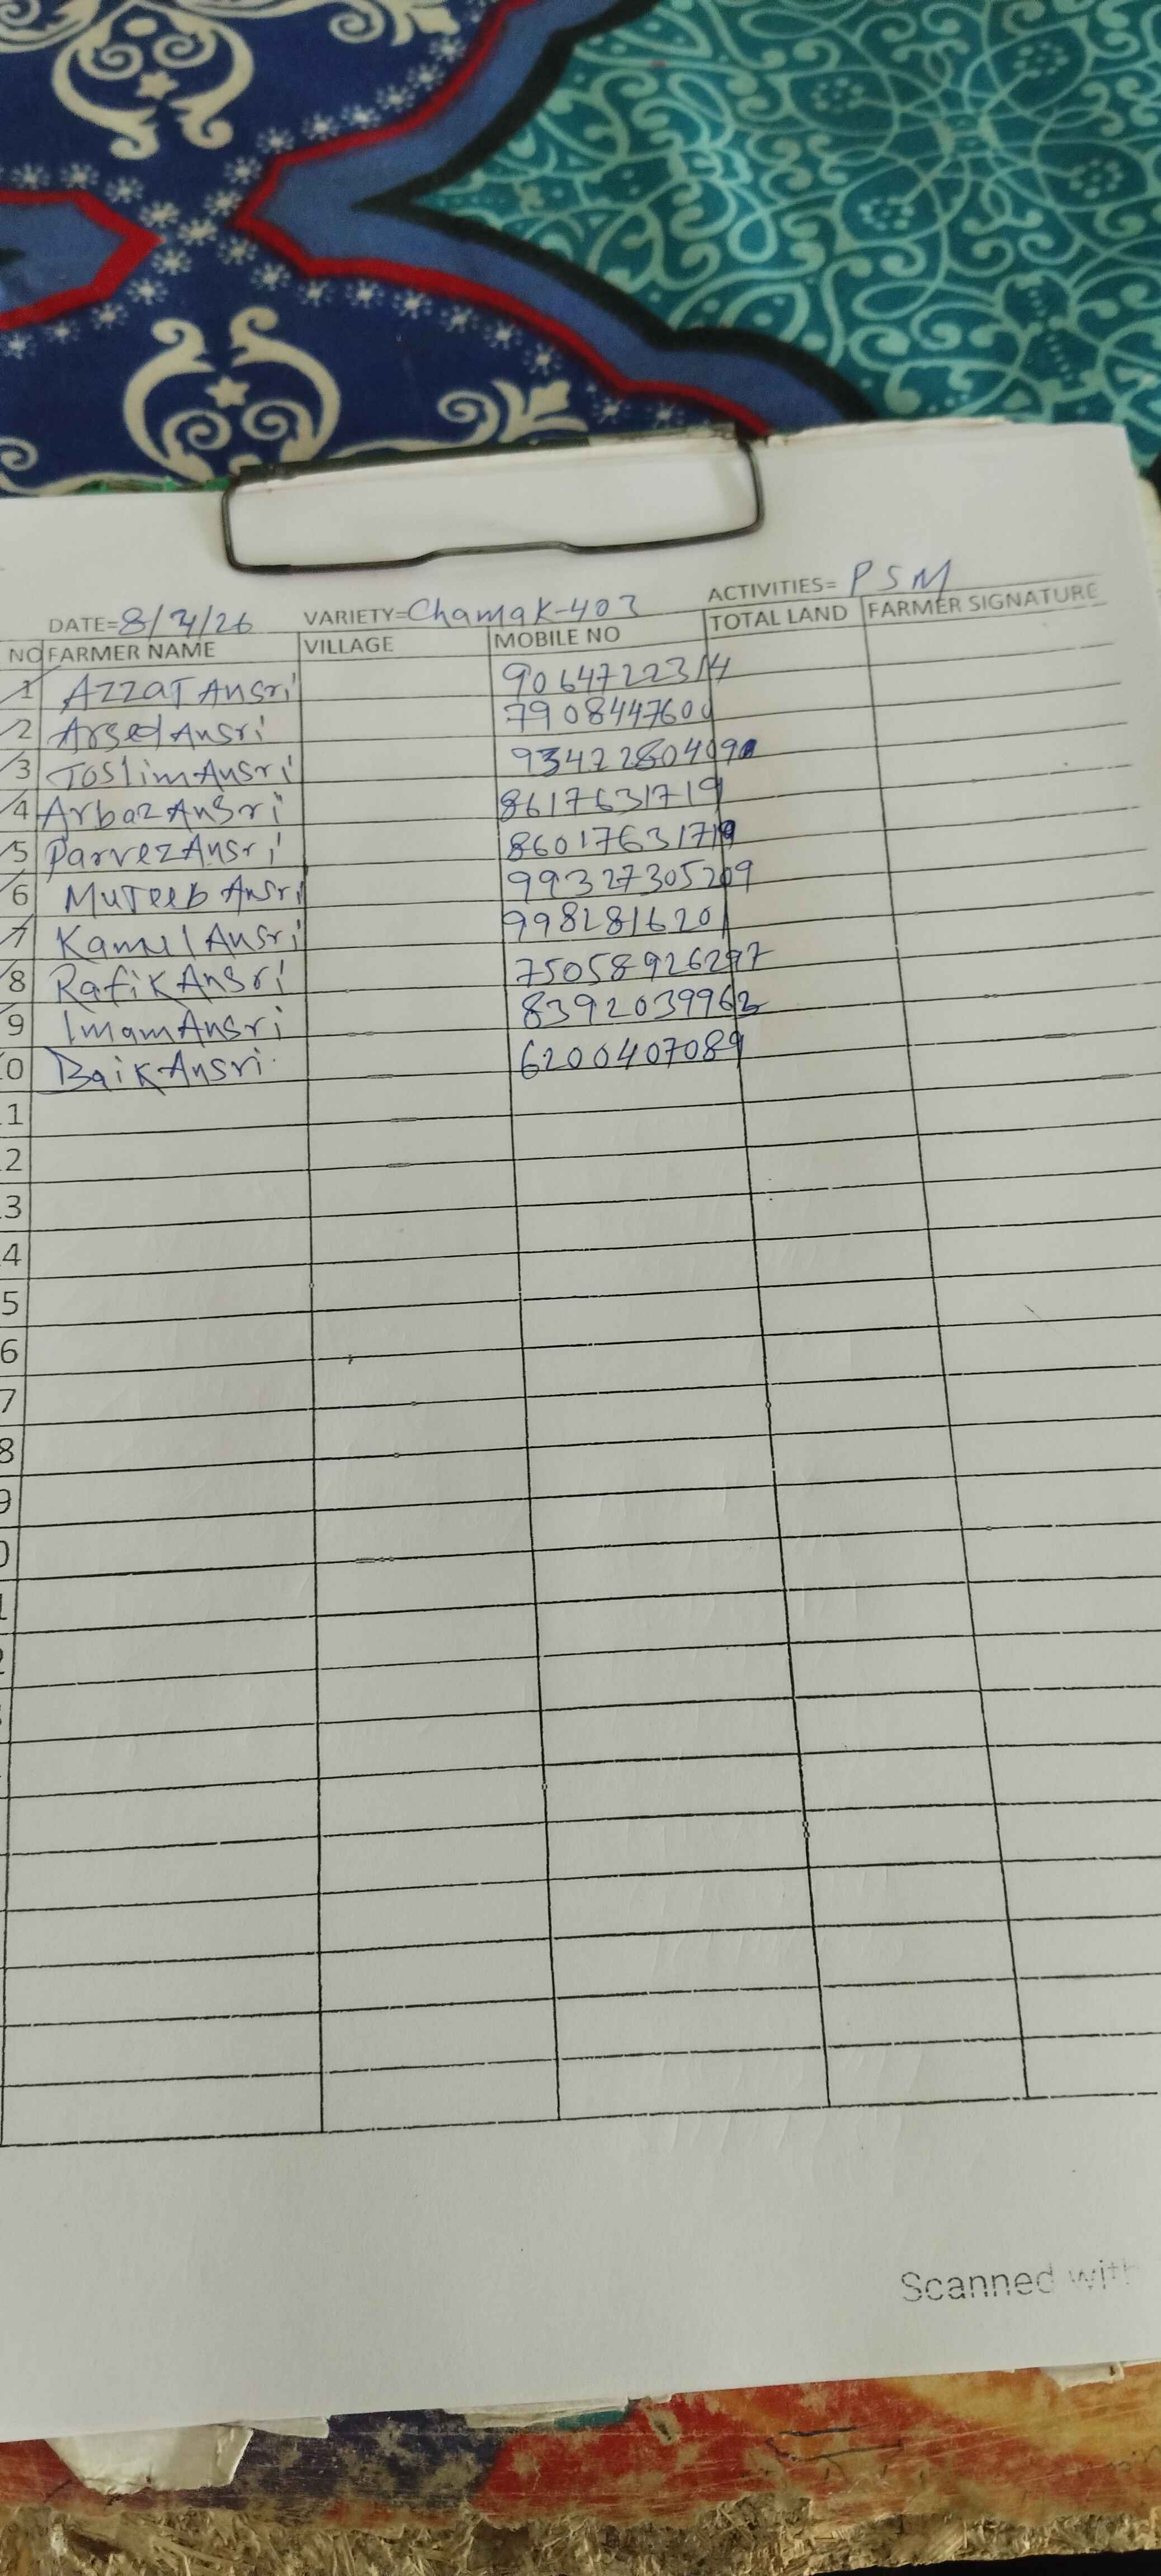 DATE=8/4/26 VARIETY=Chamak-403 ACTIVITIES= PSM
NO FARMER NAME VILLAGE MOBILE NO TOTAL LAND FARMER SIGNATURE
1 Azzat Ansri 9064722314
2 Arsed Ansri 7908447600
3 Toslim Ansri 9342280409
4 Arbaz Ansri 8617631719
5 Parvez Ansri 86017631719
6 Muteeb Ansri 99327305209
7 Kamul Ansri 9982816201
8 Rafik Ansri 75058926297
9 Imam Ansri 8392039963
0 Baik Ansri 6200407089
1
2
3
4
5
6
7
8
9
0
1
Scanned with